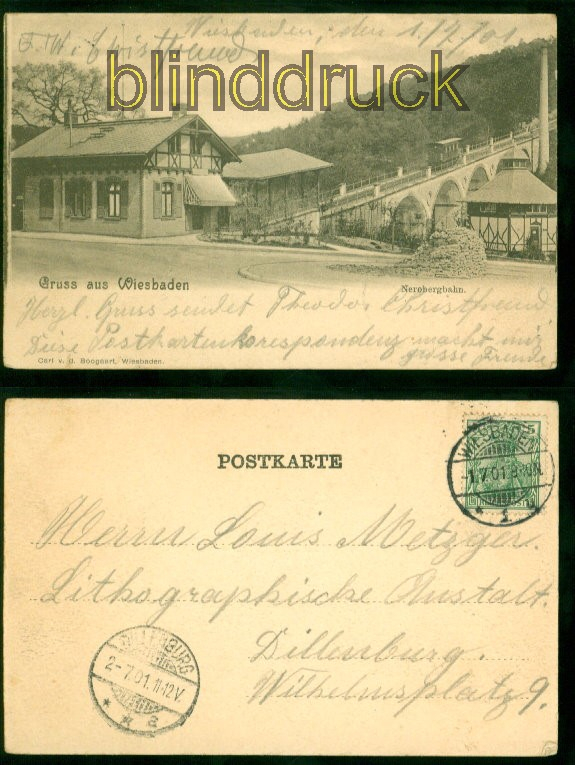 Wiesbaden, den 1/7 01.
blinddruck
Gruss aus Wiesbaden
Nerobergbahn.
Herzl. Gruss sendet Theodor Christfreund
Diese Postkartenkorrespondenz macht mir
grosse Freude.
Carl v. d. Boogaart, Wiesbaden.
POSTKARTE
WIESBADEN
-1.7.01.8-
* 1
Herrn Louis Metzger.
Lithographische Anstalt.
Dillenburg.
Wilhelmsplatz 9.
DILLENBURG
2-7.01.11-12V.
* * a